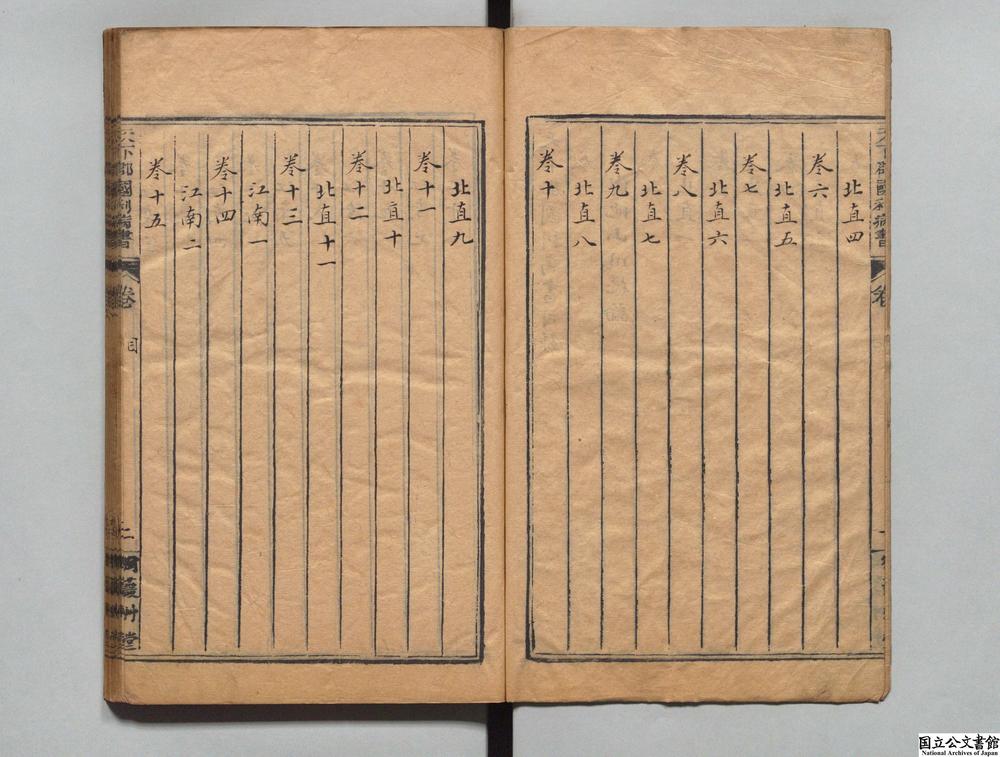 北直四
卷六
北直五
卷七
北直六
卷八
北直七
卷九
北直八
卷十
天下郡國利病書
卷
北直九
卷十一
北直十
卷十二
北直十一
卷十三
江南一
卷十四
江南二
卷十五
天下郡國利病書
卷
目
二
艸堂
国立公文書館
National Archives of Japan